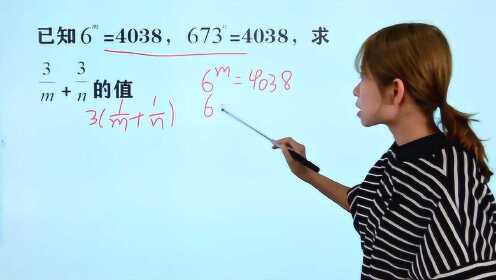 已知6ᵐ=4038，673ⁿ=4038，求
3/m + 3/n 的值
3(1/m+1/n)
6ᵐ=4038
6